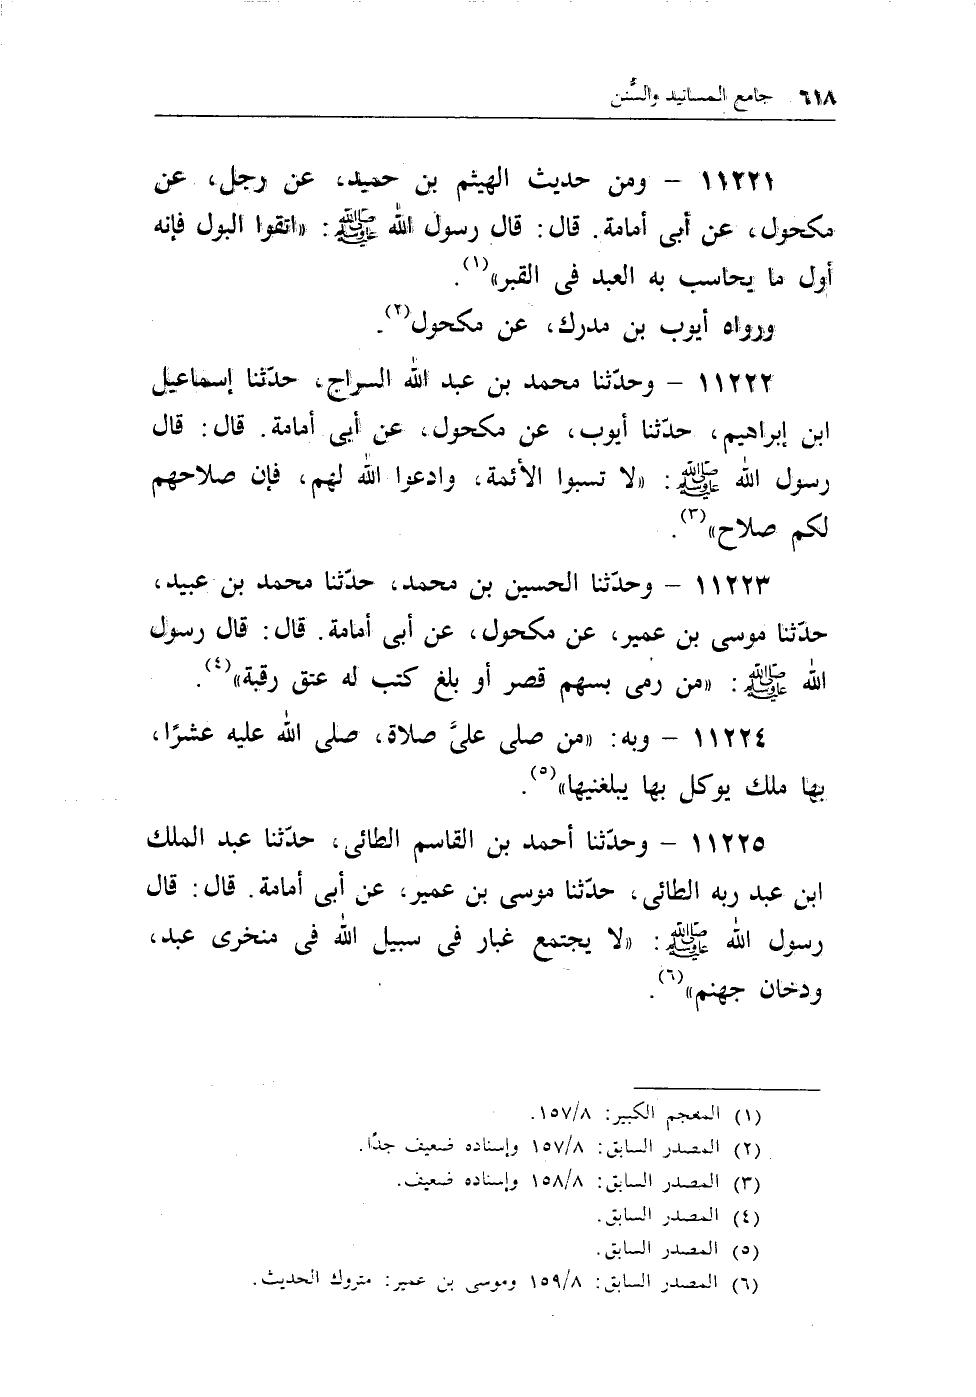 ٦١٨ جامع المسانيد والسُّنن
١١٢٢١ – ومن حديث الهيثم بن حميد، عن رجل، عن
مكحول، عن أبى أمامة. قال: قال رسول الله ﷺ: «اتقوا البول فإنه
أول ما يحاسب به العبد فى القبر»(١).
ورواه أيوب بن مدرك، عن مكحول(٢).
١١٢٢٢ – وحدّثنا محمد بن عبد الله السراج، حدّثنا إسماعيل
ابن إبراهيم، حدّثنا أيوب، عن مكحول، عن أبى أمامة. قال: قال
رسول الله ﷺ: «لا تسبوا الأئمة، وادعوا الله لهم، فإن صلاحهم
لكم صلاح»(٣).
١١٢٢٣ – وحدّثنا الحسين بن محمد، حدّثنا محمد بن عبيد،
حدّثنا موسى بن عمير، عن مكحول، عن أبى أمامة. قال: قال رسول
الله ﷺ: «من رمى بسهم قصر أو بلغ كتب له عتق رقبة»(٤).
١١٢٢٤ – وبه: «من صلى علىَّ صلاة، صلى الله عليه عشرًا،
بها ملك يوكل بها يبلغنيها»(٥).
١١٢٢٥ – وحدّثنا أحمد بن القاسم الطائى، حدّثنا عبد الملك
ابن عبد ربه الطائى، حدّثنا موسى بن عمير، عن أبى أمامة. قال: قال
رسول الله ﷺ: «لا يجتمع غبار فى سبيل الله فى منخرى عبد،
ودخان جهنم»(٦).
(١) المعجم الكبير: ١٥٧/٨.
(٢) المصدر السابق: ١٥٧/٨ وإسناده ضعيف جدًا.
(٣) المصدر السابق: ١٥٨/٨ وإسناده ضعيف.
(٤) المصدر السابق.
(٥) المصدر السابق.
(٦) المصدر السابق: ١٥٩/٨ وموسى بن عمير: متروك الحديث.